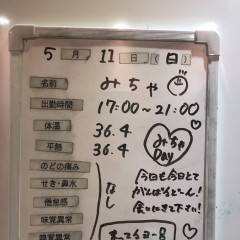 5月 11日(日)
名前 みちゃ
出勤時間 17:00~21:00
体温 36.4
平熱 36.4
みちゃ Day
のどの痛み
せき・鼻水
倦怠感
味覚異常
嗅覚異常
なし
今日も今日とて
がんばるどーん!
会いにきて下さい!